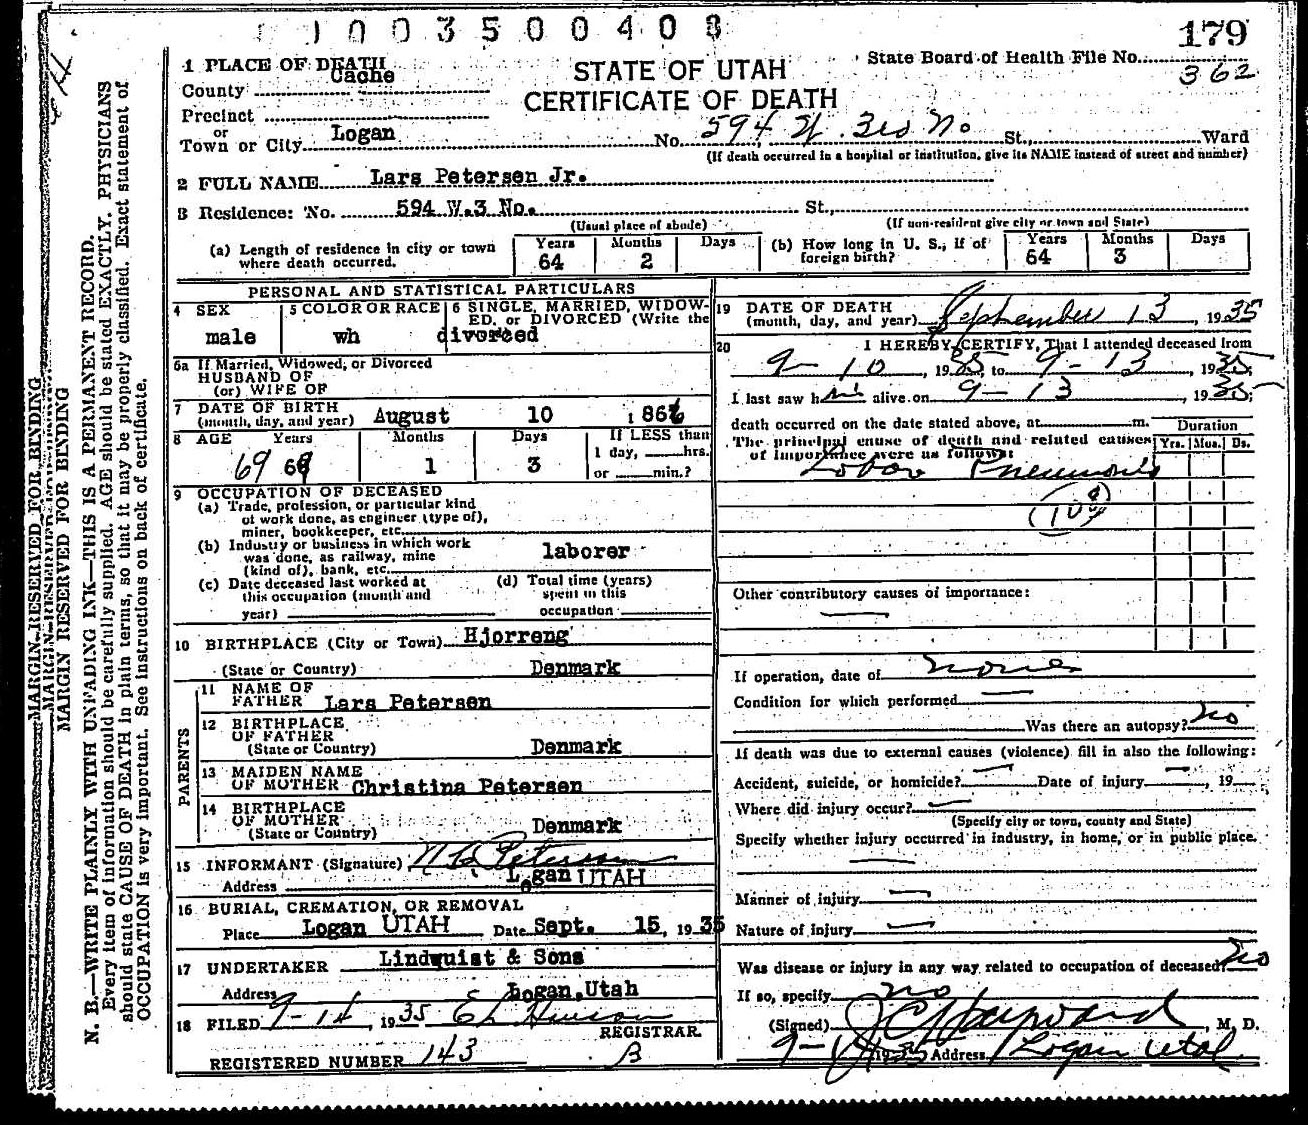 1003500408
179
State Board of Health File No.
362
STATE OF UTAH
CERTIFICATE OF DEATH
1 PLACE OF DEATH
County Cache
Precinct
or
Town or City Logan No. 594 W. 3rd No St., Ward
(If death occurred in a hospital or institution, give its NAME instead of street and number)
2 FULL NAME Lars Petersen Jr.
3 Residence: No. 594 W.3 No. St.,
(Usual place of abode) (If non-resident give city or town and State)
(a) Length of residence in city or town where death occurred. Years 64 Months 2 Days
(b) How long in U. S., if of foreign birth? Years 64 Months 3 Days
PERSONAL AND STATISTICAL PARTICULARS
4 SEX male
5 COLOR OR RACE wh
6 SINGLE, MARRIED, WIDOWED, or DIVORCED (Write the
divorced
6a If Married, Widowed, or Divorced
HUSBAND OF
(or) WIFE OF
7 DATE OF BIRTH
(month, day, and year) August 10 186
8 AGE Years 69 Months 1 Days 3
If LESS than
1 day, hrs.
or min.?
9 OCCUPATION OF DECEASED
(a) Trade, profession, or particular kind
of work done, as engineer (type of),
miner, bookkeeper, etc.
(b) Industry or business in which work
was done, as railway, mine
(kind of), bank, etc. laborer
(c) Date deceased last worked at
this occupation (month and
year)
(d) Total time (years)
spent in this
occupation
10 BIRTHPLACE (City or Town) Hjorreng
(State or Country) Denmark
PARENTS
11 NAME OF
FATHER Lars Petersen
12 BIRTHPLACE
OF FATHER
(State or Country) Denmark
13 MAIDEN NAME
OF MOTHER Christina Petersen
14 BIRTHPLACE
OF MOTHER
(State or Country) Denmark
15 INFORMANT (Signature) Peterson
Address Logan UTAH
16 BURIAL, CREMATION, OR REMOVAL
Place Logan UTAH Date Sept. 15, 1935
17 UNDERTAKER Lindquist & Sons
Address Logan, Utah
18 FILED 9-14, 1935
REGISTRAR.
REGISTERED NUMBER 143 B
19 DATE OF DEATH
(month, day, and year) September 13, 1935
20 I HEREBY CERTIFY, That I attended deceased from
9-10, 1935, to 9-13, 1935;
I last saw him alive on 9-13, 1935;
death occurred on the date stated above, at m.
The principal cause of death and related causes
of importance were as follows:
Duration
Yrs. Mos. Ds.
Lobar Pneumonia
Other contributory causes of importance:
If operation, date of none
Condition for which performed
Was there an autopsy? no
If death was due to external causes (violence) fill in also the following:
Accident, suicide, or homicide? Date of injury , 19
Where did injury occur?
(Specify city or town, county and State)
Specify whether injury occurred in industry, in home, or in public place.
Manner of injury
Nature of injury
Was disease or injury in any way related to occupation of deceased? no
If so, specify no
(Signed) J C Hayward, M. D.
1935 Address Logan Utah
MARGIN RESERVED FOR BINDING
MARGIN RESERVED FOR BINDING
N. B.—WRITE PLAINLY WITH UNFADING INK—THIS IS A PERMANENT RECORD.
Every item of information should be carefully supplied. AGE should be stated EXACTLY. PHYSICIANS
should state CAUSE OF DEATH in plain terms, so that it may be properly classified. Exact statement of
OCCUPATION is very important. See instructions on back of certificate.